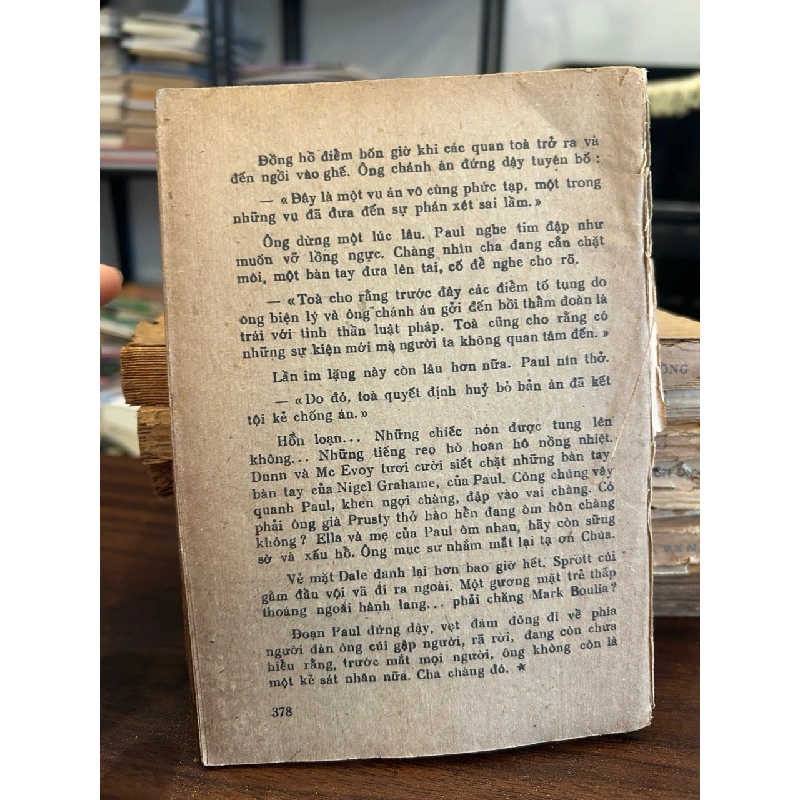 Đồng hồ điểm bốn giờ khi các quan toà trở ra và
đến ngồi vào ghế. Ông chánh án đứng dậy tuyên bố :
— « Đây là một vụ án vô cùng phức tạp, một trong
những vụ đã đưa đến sự phán xét sai lầm. »
Ông dừng một lúc lâu. Paul nghe tim đập như
muốn vỡ lồng ngực. Chàng nhìn cha đang cắn chặt
môi, một bàn tay đưa lên tai, cố để nghe cho rõ.
— «Toà cho rằng trước đây các điểm tố tụng do
ông biện lý và ông chánh án gởi đến bồi thẩm đoàn là
trái với tinh thần luật pháp. Toà cũng cho rằng có
những sự kiện mới mà người ta không quan tâm đến. »
Lần im lặng này còn lâu hơn nữa. Paul nín thở.
— «Do đó, toà quyết định huỷ bỏ bản án đã kết
tội kẻ chống án. »
Hỗn loạn... Những chiếc nón được tung lên
không... Những tiếng reo hò hoan hô nồng nhiệt.
Dunn và Mc Evoy tươi cười siết chặt những bàn tay,
bàn tay của Nigel Grahame, của Paul. Công chúng vây
quanh Paul, khen ngợi chàng, đập vào vai chàng. Có
phải ông già Prusly thở hào hển đang ôm hôn chàng
không ? Ella và mẹ của Paul ôm nhau, hãy còn sững
sờ và xấu hổ. Ông mục sư nhắm mắt lại tạ ơn Chúa.
Vẻ mặt Dale đanh lại hơn bao giờ hết. Sprott cúi
gằm đầu vội vã đi ra ngoài. Một gương mặt trẻ thấp
thoáng ngoài hành lang... phải chăng Mark Boulia ?
Đoạn Paul đứng dậy, vẹt đám đông đi về phía
người đàn ông cúi gập người, rã rời, đang còn chưa
hiểu rằng, trước mắt mọi người, ông không còn là
một kẻ sát nhân nữa. Cha chàng đó. ★
378